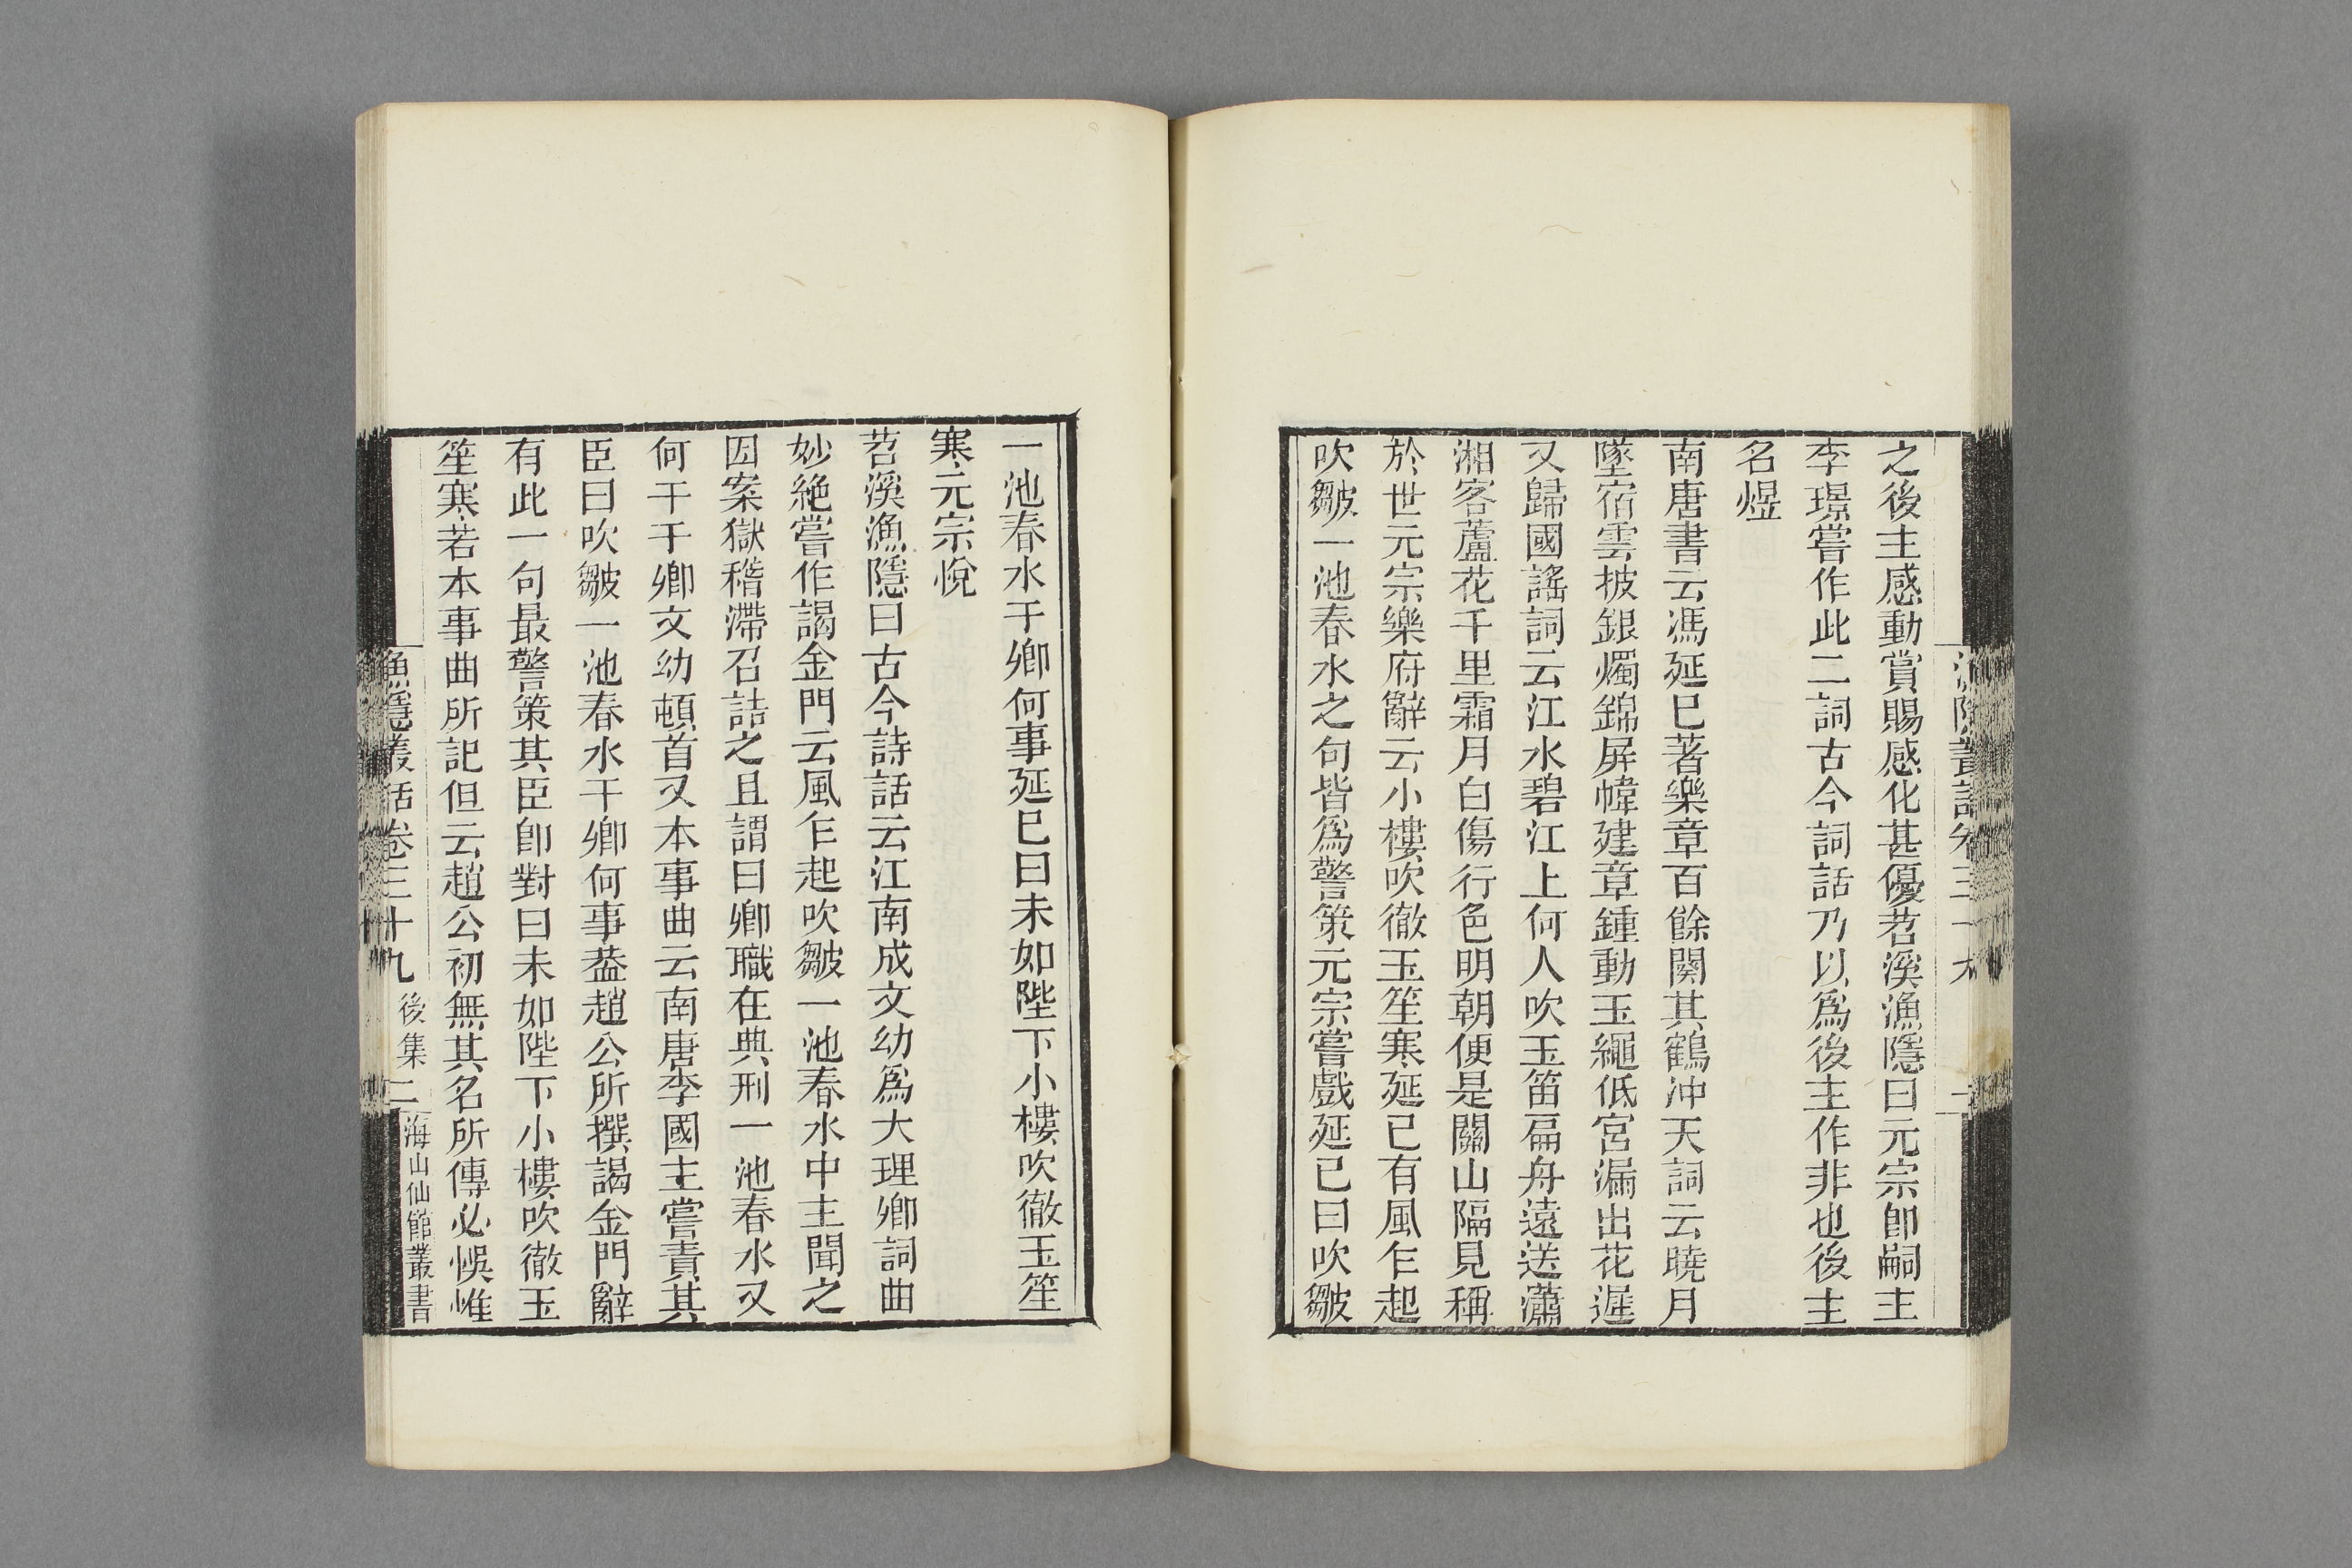 之後主感動賞賜感化甚優苕溪漁隱曰元宗卽嗣主
李璟嘗作此二詞古今詞話乃以爲後主作非也後主
名煜
南唐書云馮延巳著樂章百餘闋其鶴沖天詞云曉月
墜宿雲披銀燭錦屏幃建章鍾動玉繩低宮漏出花遲
又歸國謠詞云江水碧江上何人吹玉笛扁舟遠送瀟
湘客蘆花千里霜月白傷行色明朝便是關山隔見稱
於世元宗樂府辭云小樓吹徹玉笙寒延已有風乍起
吹皺一池春水之句皆爲警策元宗嘗戲延已曰吹皺
一池春水干卿何事延巳曰未如陛下小樓吹徹玉笙
寒元宗悅
苕溪漁隱曰古今詩話云江南成文幼爲大理卿詞曲
妙絶嘗作謁金門云風乍起吹皺一池春水中主聞之
因案獄稽滯召詰之且謂曰卿職在典刑一池春水又
何干于卿文幼頓首又本事曲云南唐李國主嘗責其
臣曰吹皺一池春水干卿何事葢趙公所撰謁金門辭
有此一句最警策其臣卽對曰未如陛下小樓吹徹玉
笙寒若本事曲所記但云趙公初無其名所傳必悞惟
漁隱叢話卷三十九 後集 二 海山仙館叢書